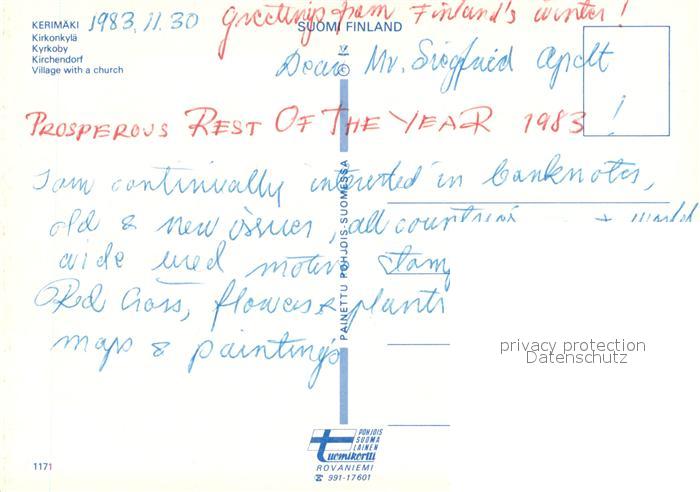 KERIMÄKI 1983.11.30 Greetings from Finland's winter!
Kirkonkylä
Kyrkoby
Kirchendorf
Village with a church
SUOMI FINLAND
Dear Mr. Siegfried Apelt !
PROSPEROUS REST OF THE YEAR 1983
I am continually interested in banknotes,
old & new issues, all countries + world
wide used motiv stamp
Red Cross, flowers & plants
maps & paintings
PAINETTU POHJOIS-SUOMESSA
privacy protection
Datenschutz
POHJOIS
SUOMA
LAINEN
Tuomikortti
ROVANIEMI
☎ 991-17601
1171